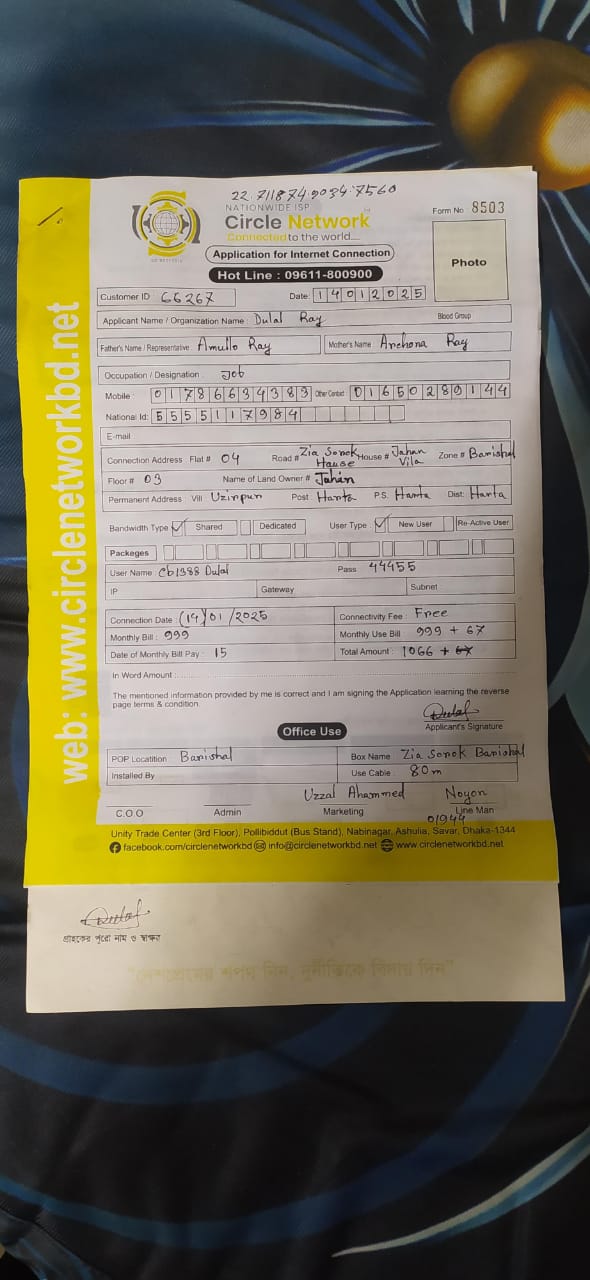 22.711874,9034.7560
NATIONWIDE ISP
Circle Network
Connected to the world....
Form No 8503
Application for Internet Connection
Hot Line : 09611-800900
Photo
Customer ID 66267 Date: 14012025
Applicant Name / Organization Name : Dulal Ray Blood Group
Father's Name / Representative : Amullo Ray Mother's Name Archona Ray
Occupation / Designation : Job
Mobile 01786634383 Other Contact 01650289144
National Id: 5555117984
E-mail
Connection Address Flat # 04 Road # Zia Sorok House House # Jahan Vila Zone # Barishal
Floor # 03 Name of Land Owner # Jahin
Permanent Address Vill Uzirpur Post Harta P.S. Harta Dist: Harta
Bandwidth Type ✓ Shared Dedicated User Type ✓ New User Re-Active User
Packeges
User Name Cb1388 Dulal Pass 44455
IP Gateway Subnet
Connection Date (14)/01/2025 Connectivity Fee : Free
Monthly Bill : 999 Monthly Use Bill 999 + 67
Date of Monthly Bill Pay : 15 Total Amount : 1066 + 67
In Word Amount :
The mentioned information provided by me is correct and I am signing the Application learning the reverse
page terms & condition.
Dulal
Applicant's Signature
Office Use
POP Locatition Barishal Box Name Zia Sorok Barishal
Installed By Use Cable : 80m
Uzzal Ahammed Noyon
C.O.O Admin Marketing Line Man
01944
Unity Trade Center (3rd Floor), Pollibiddut (Bus Stand), Nabinagar, Ashulia, Savar, Dhaka-1344
facebook.com/circlenetworkbd info@circlenetworkbd.net www.circlenetworkbd.net
web: www.circlenetworkbd.net
Dulal
গ্রাহকের পুরো নাম ও স্বাক্ষর
"দেশপ্রেমের শপথ নিন, দুর্নীতিকে বিদায় দিন"